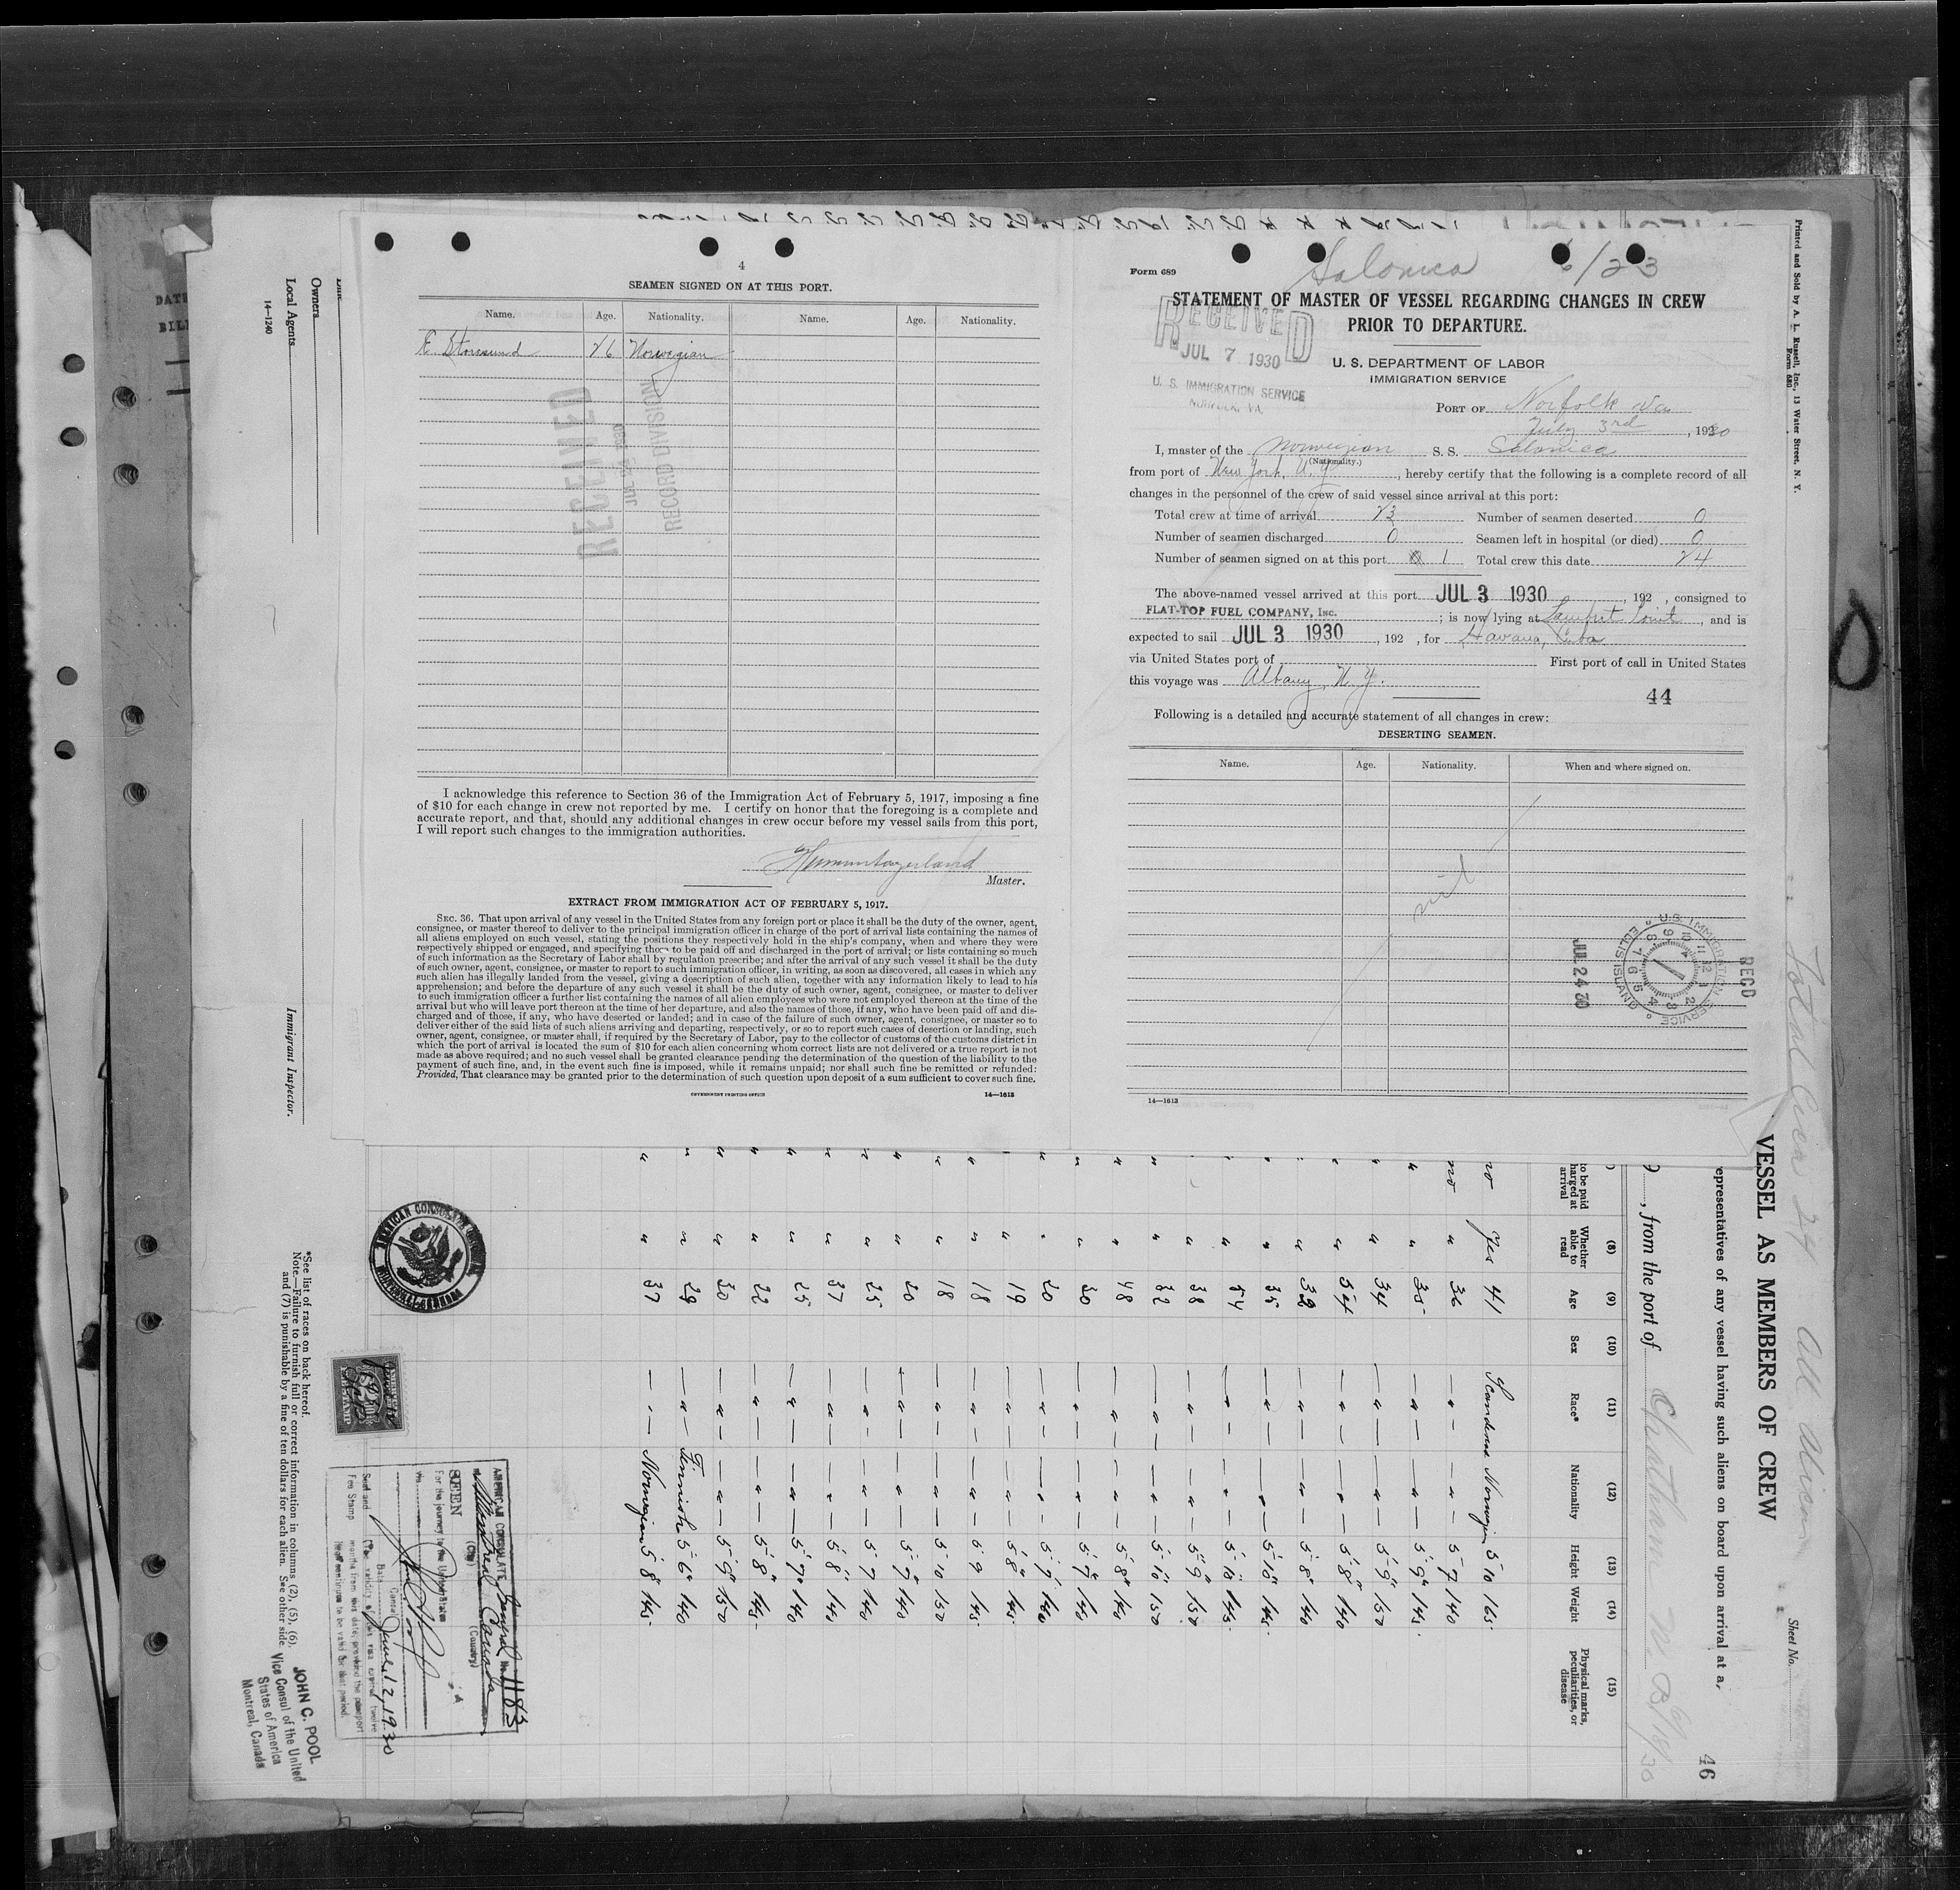 4
SEAMEN SIGNED ON AT THIS PORT.
Name. Age. Nationality. Name. Age. Nationality.
26 Norwegian
RECEIVED
JUL 24 1930
RECORD DIVISION
I acknowledge this reference to Section 36 of the Immigration Act of February 5, 1917, imposing a fine
of $10 for each change in crew not reported by me. I certify on honor that the foregoing is a complete and
accurate report, and that, should any additional changes in crew occur before my vessel sails from this port,
I will report such changes to the immigration authorities.
Master.
EXTRACT FROM IMMIGRATION ACT OF FEBRUARY 5, 1917.
SEC. 36. That upon arrival of any vessel in the United States from any foreign port or place it shall be the duty of the owner, agent,
consignee, or master thereof to deliver to the principal immigration officer in charge of the port of arrival lists containing the names of
all aliens employed on such vessel, stating the positions they respectively hold in the ship's company, when and where they were
respectively shipped or engaged, and specifying those to be paid off and discharged in the port of arrival; or lists containing so much
of such information as the Secretary of Labor shall by regulation prescribe; and after the arrival of any such vessel it shall be the duty
of such owner, agent, consignee, or master to report to such immigration officer, in writing, as soon as discovered, all cases in which any
such alien has illegally landed from the vessel, giving a description of such alien, together with any information likely to lead to his
apprehension; and before the departure of any such vessel it shall be the duty of such owner, agent, consignee, or master to deliver
to such immigration officer a further list containing the names of all alien employees who were not employed thereon at the time of the
arrival but who will leave port thereon at the time of her departure, and also the names of those, if any, who have been paid off and dis-
charged and of those, if any, who have deserted or landed; and in case of the failure of such owner, agent, consignee, or master so to
deliver either of the said lists of such aliens arriving and departing, respectively, or so to report such cases of desertion or landing, such
owner, agent, consignee, or master shall, if required by the Secretary of Labor, pay to the collector of customs of the customs district in
which the port of arrival is located the sum of $10 for each alien concerning whom correct lists are not delivered or a true report is not
made as above required; and no such vessel shall be granted clearance pending the determination of the question of the liability to the
payment of such fine, and, in the event such fine is imposed, while it remains unpaid; nor shall such fine be remitted or refunded:
Provided, That clearance may be granted prior to the determination of such question upon deposit of a sum sufficient to cover such fine.
GOVERNMENT PRINTING OFFICE 14—1613
Form 689 Salonica 6/23
STATEMENT OF MASTER OF VESSEL REGARDING CHANGES IN CREW
PRIOR TO DEPARTURE.
RECEIVED
JUL 7 1930
U. S. IMMIGRATION SERVICE
NORFOLK, VA.
U. S. DEPARTMENT OF LABOR
IMMIGRATION SERVICE
PORT OF Norfolk Va
July 3rd, 1930
I, master of the Norwegian S. S. Salonica
(Nationality.)
from port of New York, N. Y., hereby certify that the following is a complete record of all
changes in the personnel of the crew of said vessel since arrival at this port:
Total crew at time of arrival 23 Number of seamen deserted 0
Number of seamen discharged 0 Seamen left in hospital (or died) 0
Number of seamen signed on at this port 1 Total crew this date 24
The above-named vessel arrived at this port JUL 3 1930, 192 , consigned to
FLAT-TOP FUEL COMPANY, Inc. ; is now lying at Lambert Point, and is
expected to sail JUL 3 1930, 192 , for Havana, Cuba
via United States port of First port of call in United States
this voyage was Albany, N. Y.
44
Following is a detailed and accurate statement of all changes in crew:
DESERTING SEAMEN.
Name. Age. Nationality. When and where signed on.
nil
U.S. IMMIGRATION SERVICE
ELLIS ISLAND
REC'D
JUL 24 30
14—1613
Printed and Sold by A. L. Russell, Inc., 13 Water Street, N. Y.
Form 680
Total Crew 24 All Alien
Sheet No.
46
VESSEL AS MEMBERS OF CREW
epresentatives of any vessel having such aliens on board upon arrival at a
, from the port of Chatham N. B. 6/18/30
to be paid
harged at
arrival
(8) Whether able to read
(9) Age
(10) Sex
(11) Race*
(12) Nationality
(13) Height
(14) Weight
(15) Physical marks, peculiarities, or disease
no Yes 41 5-10 165
no " 36 " " 5-7 140
" " 35 " " 5-9 145
" " 34 " " 5-9 150
" " 54 " " 5-8 140
" " 32 " " 5-8 140
" " 35 " " 5-10 145
" " 54 " " 5-10 145
" " 38 " " 5-9 150
" " 32 " " 5-10 150
" " 48 " " 5-8 140
" " 30 " " 5-7 140
" " 20 " " 5-7 140
" " 19 " " 5-8 145
" " 18 " " 5-9 145
" " 18 " " 5-10 150
" " 20 " " 5-7 140
" " 25 " " 5-7 140
" " 37 " " 5-8 145
" " 25 " " 5-7 140
" " 22 " " 5-8 145
" " 30 " " 5-9 150
" " 29 " Finnish 5-6 140
" " 37 " Norwegian 5-8 145
AMERICAN CONSULATE General
No. 1183
Montreal Canada
(City) (Country)
SEEN
For the journey to the United States
Date June 12, 1930
Fee Stamp
AMERICAN
FEE STAMP
JOHN C. POOL
Vice Consul of the United
States of America
Montreal, Canada
*See list of races on back hereof.
Note.—Failure to furnish full or correct information in columns (2), (5), (6),
and (7) is punishable by a fine of ten dollars for each alien. See other side.
Immigrant Inspector.
Owners
Local Agents
14—1240